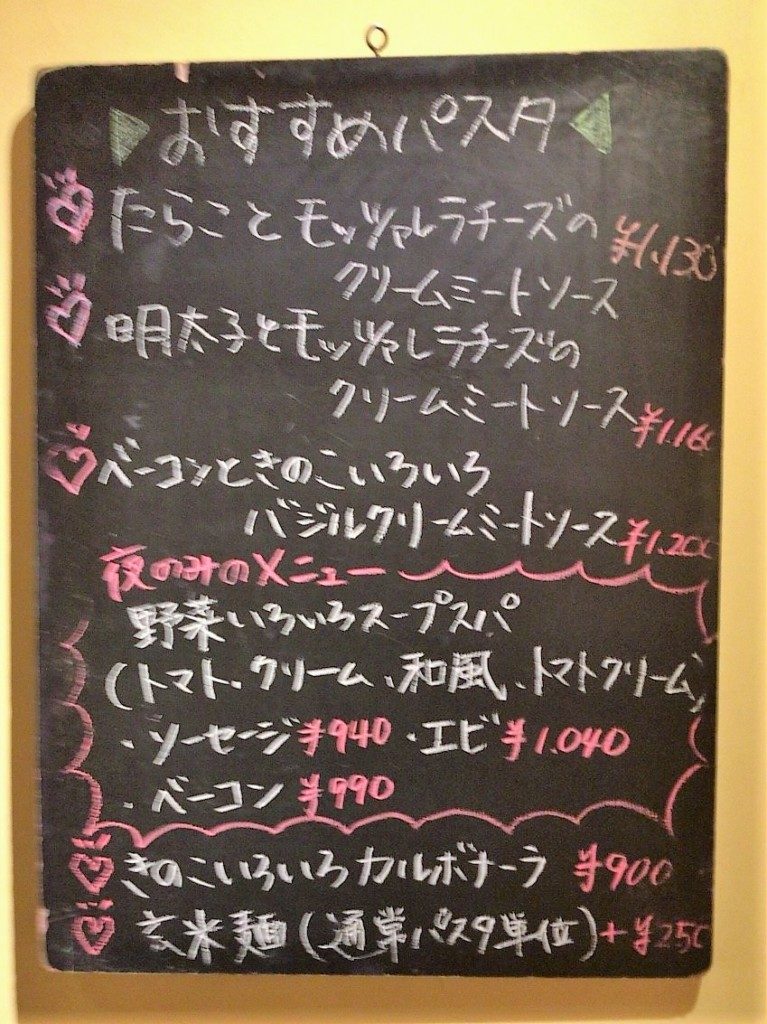 おすすめパスタ
たらことモッツァレラチーズの ¥1.130
クリームミートソース
明太子とモッツァレラチーズの
クリームミートソース ¥1.160
ベーコンときのこいろいろ
バジルクリームミートソース ¥1.200
夜のみのメニュー
野菜いろいろスープスパ
(トマト、クリーム、和風、トマトクリーム)
・ソーセージ ¥940 ・エビ ¥1.040
・ベーコン ¥990
きのこいろいろカルボナーラ ¥900
玄米麺(通常パスタ単位)+¥250